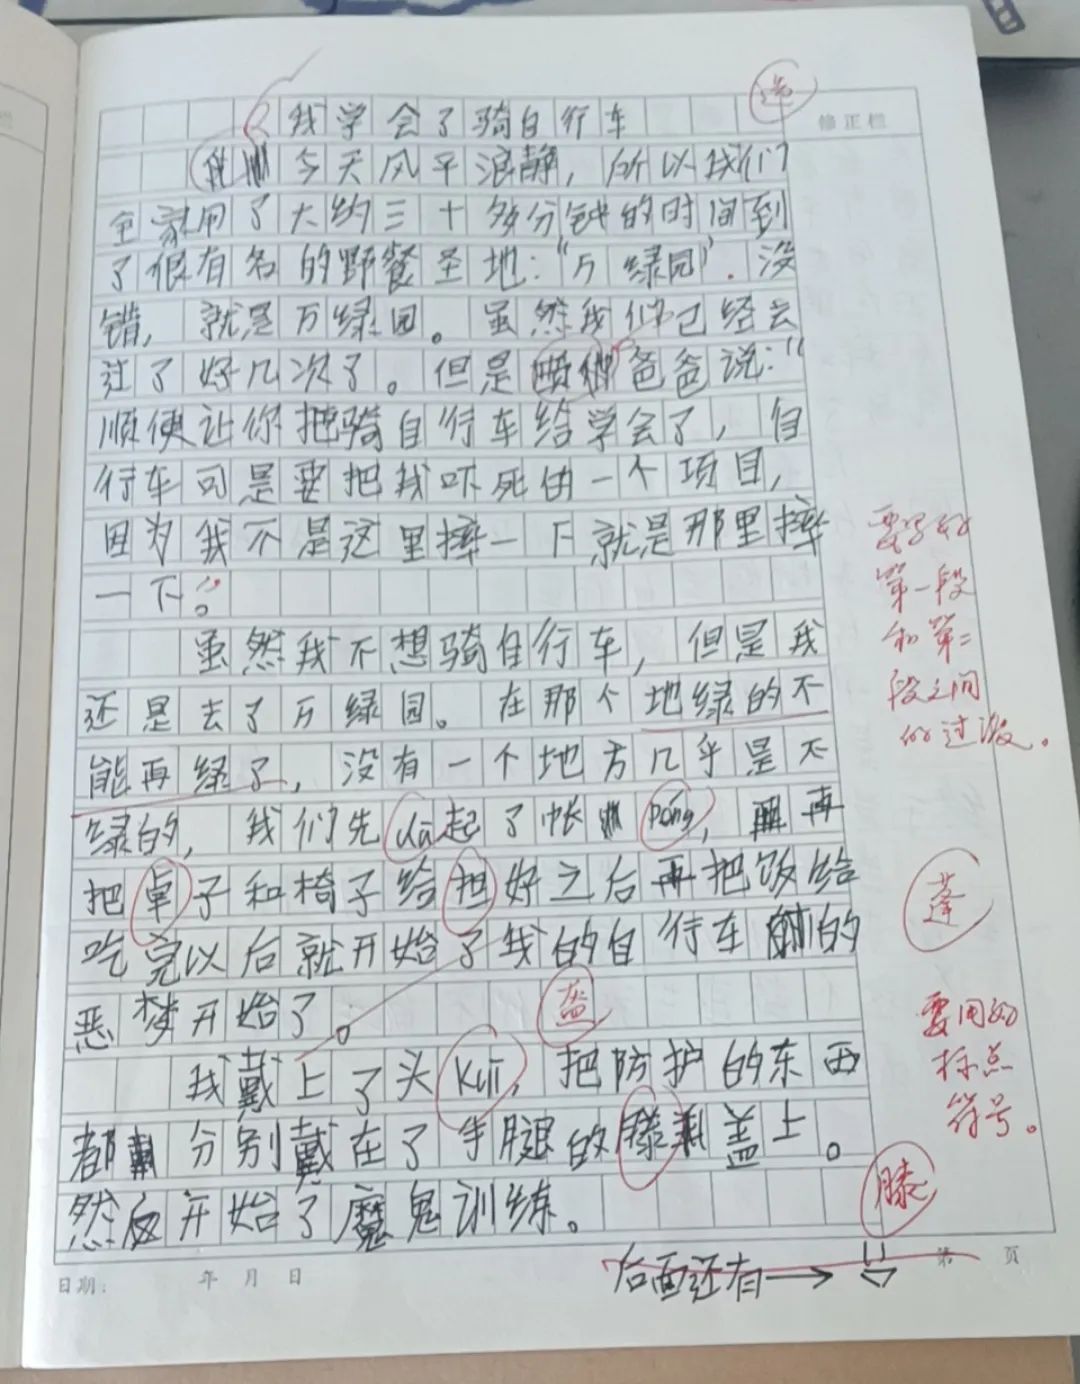 我学会了骑自行车
修正栏
今天风平浪静，所以我们
全家用了大约三十多分钟的时间到
了很有名的野餐圣地：“万绿园”．没
错，就是万绿园。虽然我们已经去
过了好几次了。但是爸爸说：“
顺便让你把骑自行车给学会了，自
行车可是要把我吓死的一个项目，
因为我不是这里摔一下就是那里摔
一下。”
虽然我不想骑自行车，但是我
还是去了万绿园。在那个地绿的不
能再绿了，没有一个地方几乎是不
绿的，我们先dā起了帐péng，再
把卓子和椅子给担好之后再把饭给
吃完以后就开始了我的自行车的
恶梦开始了。
盔
我戴上了头kuī，把防护的东西
都分别戴在了手腿的膝盖上。
然后开始了魔鬼训练。
要写好
第一段
和第二
段之间
的过渡。
蓬
要用好
标点
符号。
膝
日期： 年 月 日
后面还有→
第 页